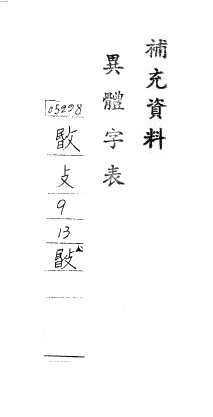 補充資料
異體字表
05298
敯
攴
9
13